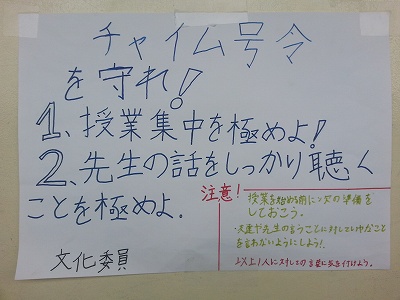 チャイム号令
を守れ!
1、授業集中を極めよ!
2、先生の話をしっかり聴く
ことを極めよ.
注意!
授業を始める前に次の準備を
しておこう.
・友達や先生の言うことに対していやがること
を言わないようにしよう!
人に対しての言葉に気を付けよう.
文化委員